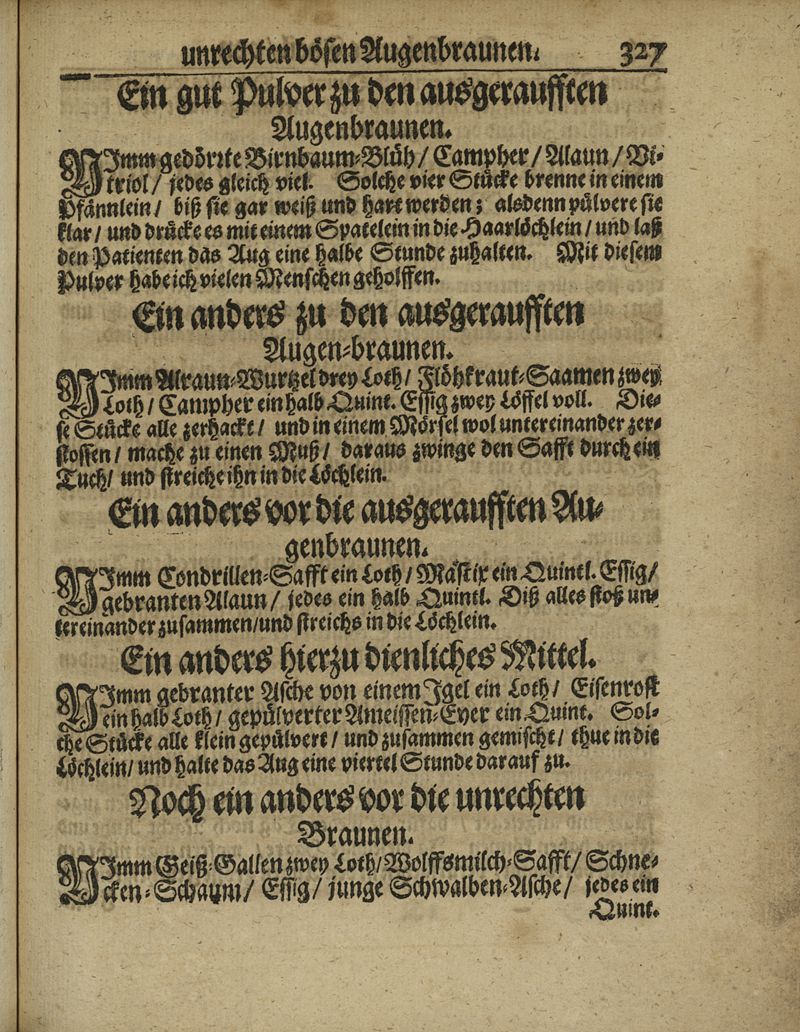 unrechten bösen Augenbraunen. 327
Ein gut Pulver zu den ausgeraufften
Augenbraunen.
NImm gedörrte Birnbaum-Blüh/ Campher/ Alaun/ Vi-
triol/ jedes gleich viel. Solche vier Stücke brenne in einem
Pfännlein/ biß sie gar weiß und hart werden; alsdenn pülvere sie
klar/ und drücke es mit einem Spatelein in die Haarlöchlein/ und laß
den Patienten das Aug eine halbe Stunde zuhalten. Mit diesem
Pulver habe ich vielen Menschen geholffen.
Ein anders zu den ausgeraufften
Augen-braunen.
NImm Alraun-Wurtzel drey Loth/ Flöhkraut-Saamen zwey
Loth/ Campher ein halb Quint. Essig zwey Löffel voll. Die-
se Stücke alle zerhackt/ und in einem Mörsel wol untereinander zer-
stossen/ mache zu einen Muß/ daraus zwinge den Safft durch ein
Tuch/ und streiche ihn in die Löchlein.
Ein anders vor die ausgeraufften Au-
genbraunen.
NImm Condrillen-Safft ein Loth/ Mastix ein Quintl. Essig/
gebranten Alaun/ jedes ein halb Quintl. Diß alles stoß un-
tereinander zusammen/und streichs in die Löchlein.
Ein anders hierzu dienliches Mittel.
NImm gebranter Asche von einem Igel ein Loth/ Eisenrost
ein halb Loth/ gepülverter Ameissen-Eyer ein Quint. Sol-
che Stücke alle klein gepülvert/ und zusammen gemischt/ thue in die
Löchlein/ und halte das Aug eine viertel Stunde darauf zu.
Noch ein anders vor die unrechten
Braunen.
NImm Geiß-Gallen zwey Loth/Wolffsmilch-Safft/ Schne-
cken-Schaum/ Essig/ junge Schwalben-Asche/ jedes ein
Quint.